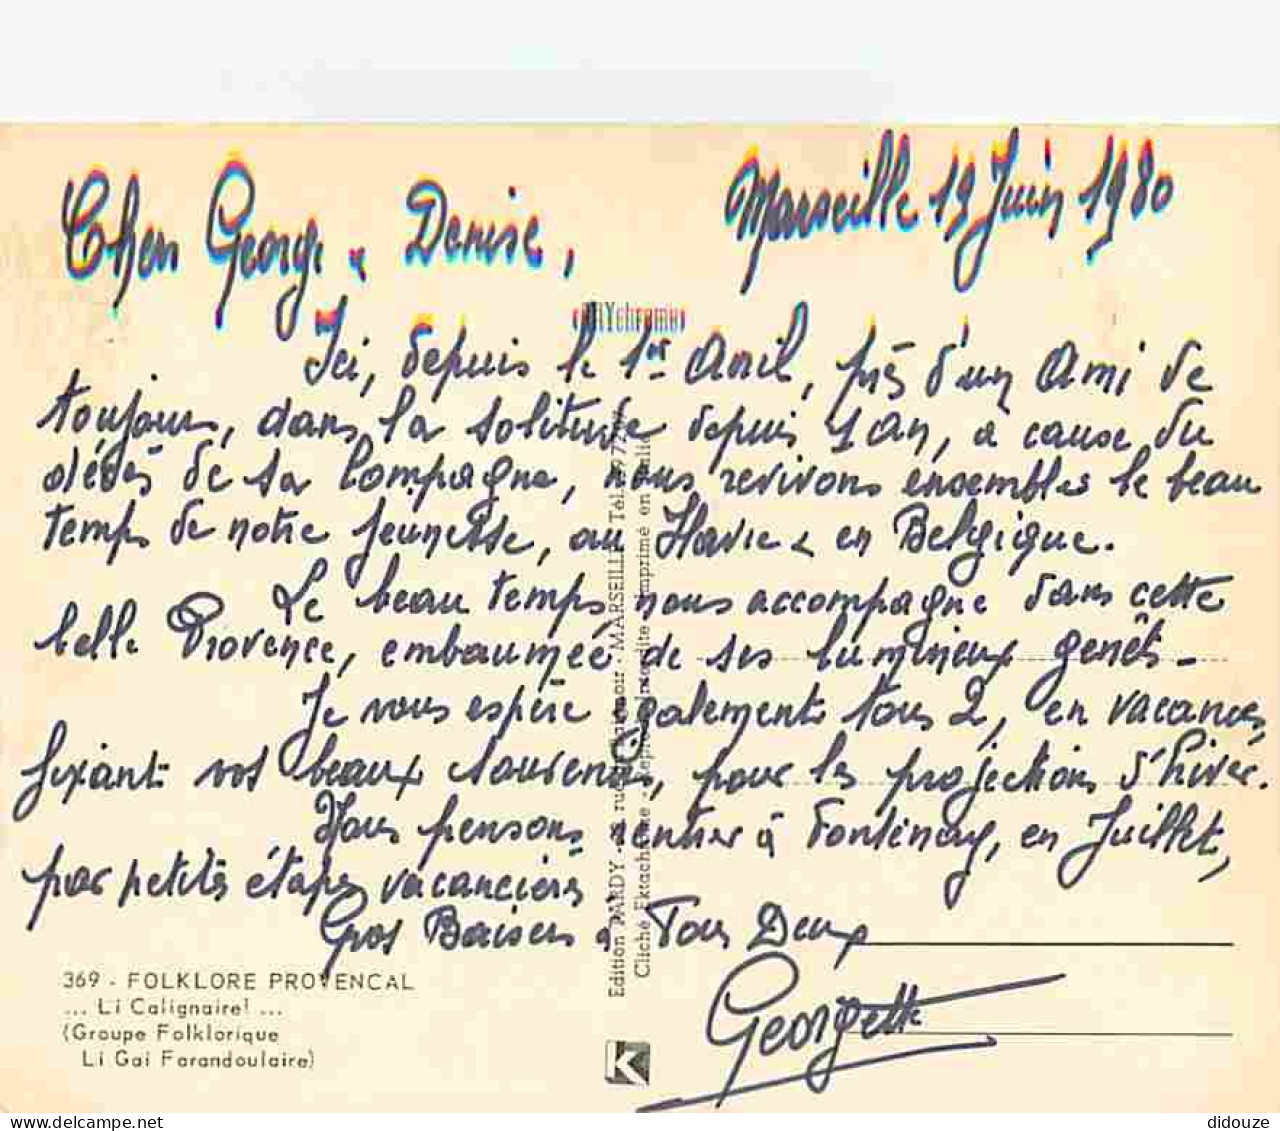 Marseille 19 Juin 1980
Cher George & Denise,
RAYchrome
Ici, depuis le 1er Avril, près d'un Ami de
toujours, dans la solitude depuis 1 an, à cause du
décès de sa Compagne, nous revivons ensembles le beau
temps de notre jeunesse, au Havre & en Belgique.
Le beau temps nous accompagne dans cette
belle Provence, embaumée de ses lumineux genêts -
Je vous espère également tous 2, en vacances,
fixant vos beaux souvenirs, pour les projections d'hiver.
Nous pensons rentrer à Fontenay, en Juillet,
par petites étapes vacancières
Gros Baisers à Tous Deux
Georgette
369 - FOLKLORE PROVENCAL
... Li Calignaire! ...
(Groupe Folklorique
Li Gai Farandoulaire)
Edition TARDY - rue - MARSEILLE - Tél.
Cliché Ektachrome - Reproduction interdite - Imprimé en Italie
K
didouze